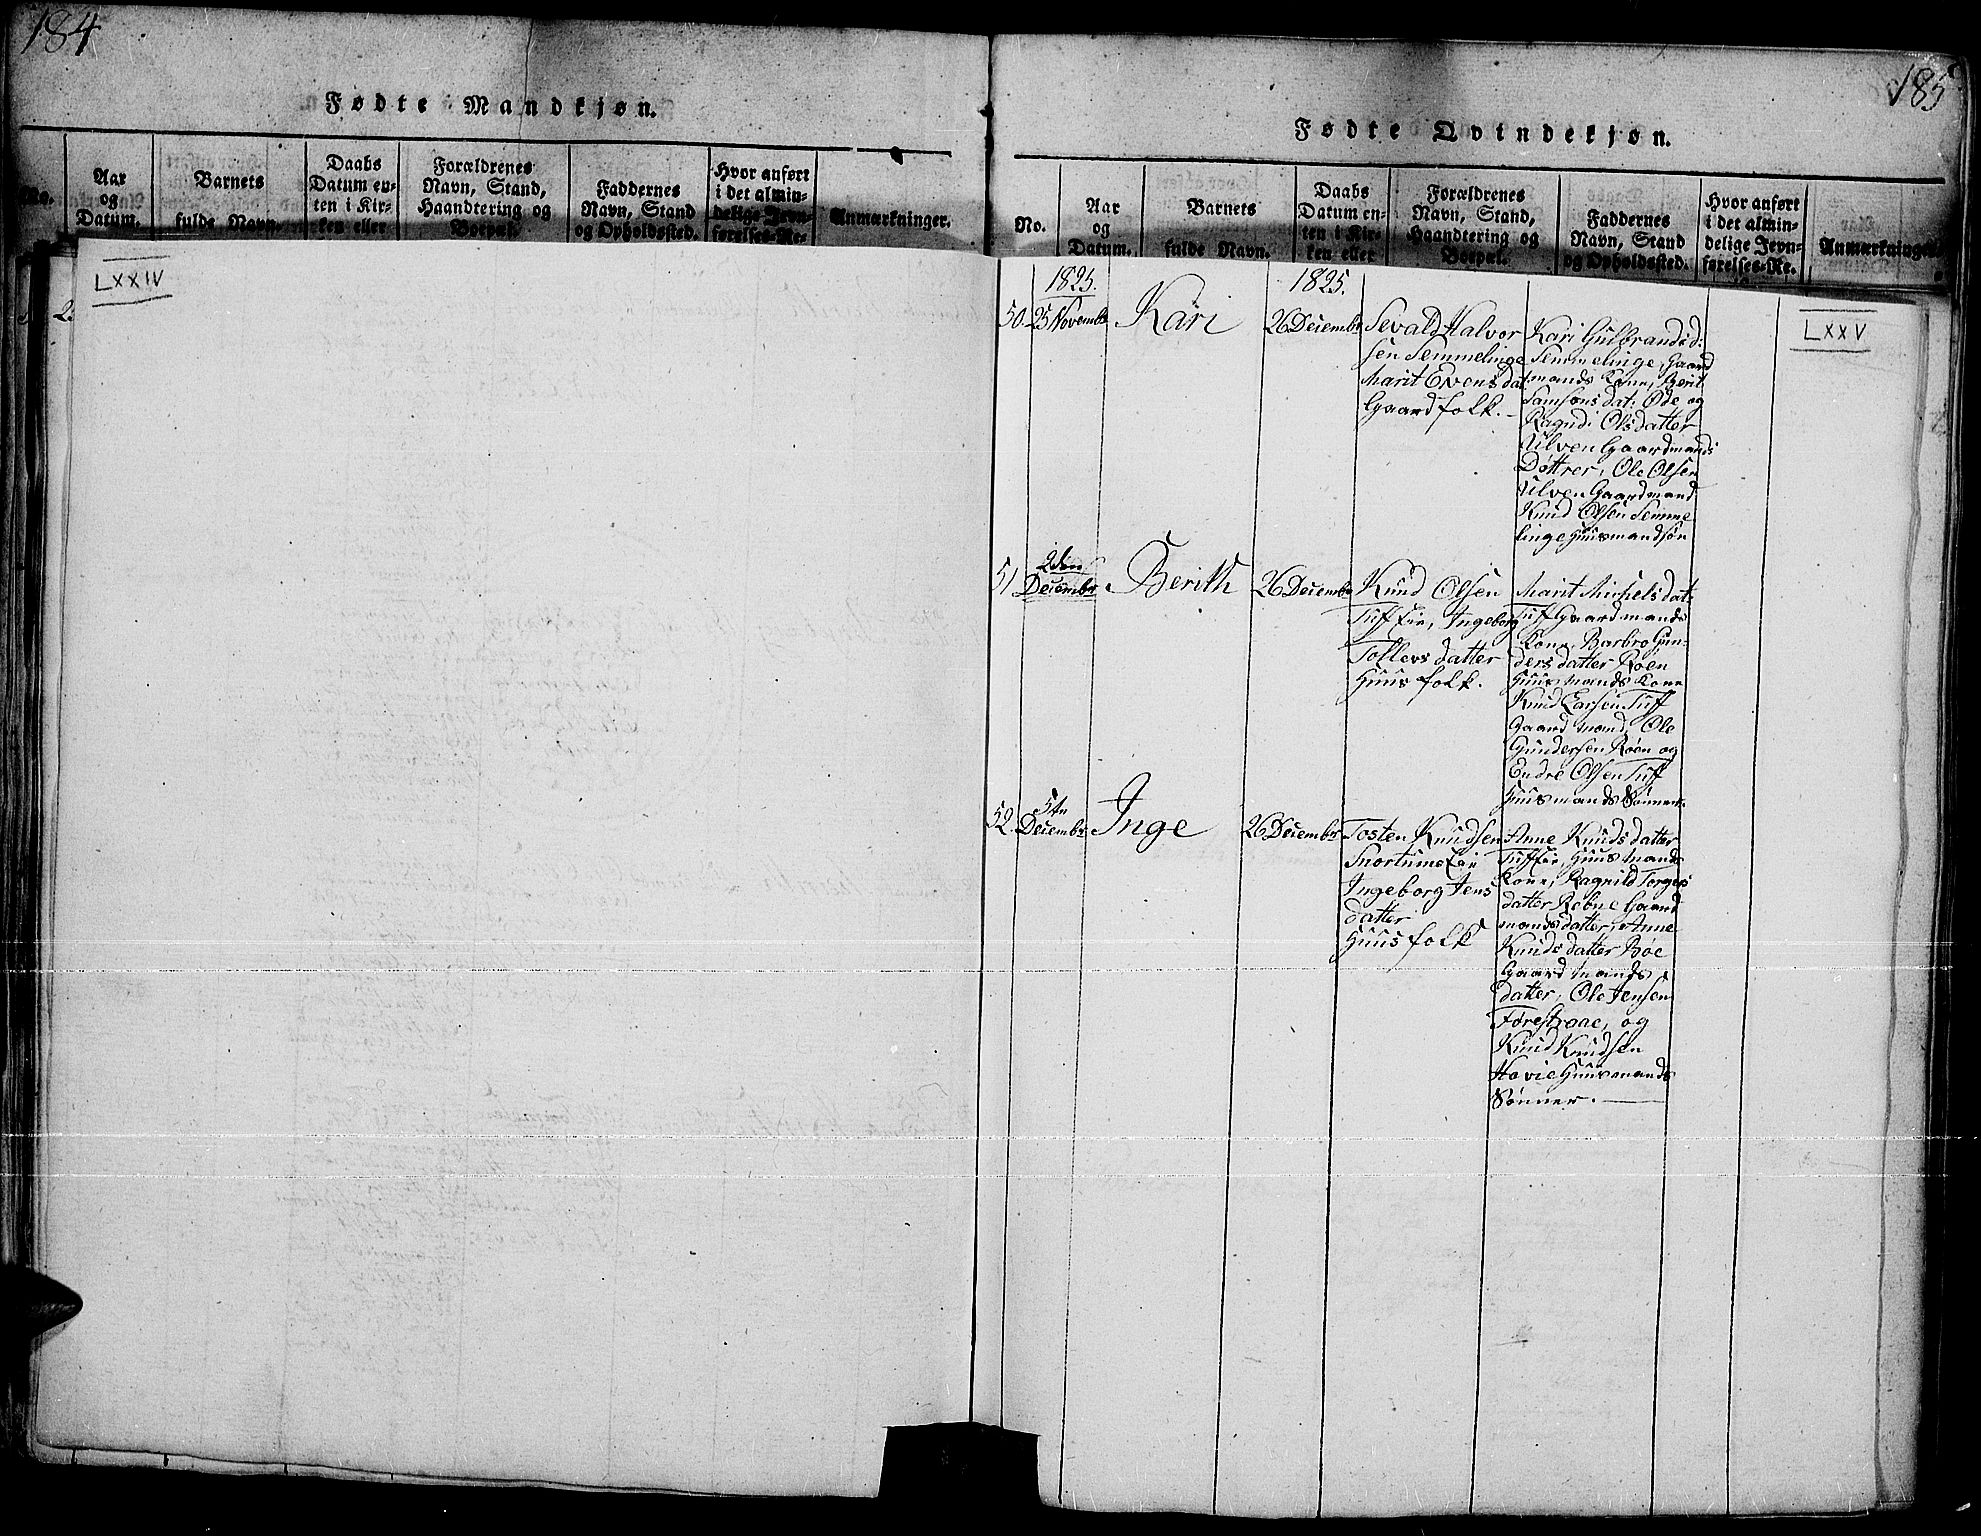 184
Fødte Mandkjøn.
No.
Aar
og
Datum.
Barnets
fulde Navn.
Daabs
Datum en-
ten i Kir-
ken eller
Forældrenes
Navn, Stand,
Haandtering og
Bopæl.
Faddernes
Navn, Stand
og Opholdssted.
Hvor anført
i det almin-
delige Jevn-
førelses-Re-
Anmærkninger.
LXXIV
185
Fødte Qvindekjøn.
No.
Aar
og
Datum.
Barnets
fulde Navn.
Daabs
Datum en-
ten i Kir-
ken eller
Forældrenes
Navn, Stand,
Haandtering og
Bopæl.
Faddernes
Navn, Stand
og Opholdssted.
Hvor anført
i det almin-
delige Jevn-
førelses-Re.
Anmærkninger.
LXXV
1825.
50.
25 Novembr
Kari
1825.
26 Decembr
Sevald Halvor
sen Semmelinge
Marit Evensdat
Gaardfolk.
Kari Gulbrandsd:
Semmelinge, Gaard
mands Kone, Berit
Samsonsdat: Øde og
Ragnd: Olsdatter
Ulven Gaardmands
Døttrer, Ole Olsen
Ulven Gaardmand
Knud Olsen Semme
linge Huusmandsøn
51
2den
Decembr
Berith
26 Decembr
Knud Olsen
Tuff Eie, Ingeborg
Tollevsdatter
Huusfolk.
Marit Michelsdat:
Tuff Gaardmands
Kone, Barbro Gun-
dersdatter Roen
Huusmands Kone
Knud Larsen Tuff
Gaardmand, Ole
Gundersen Roen og
Endre Olsen Tuff
Huusmands Sønner.
52.
5te
Decembr
Inge
26 Decembr
Tosten Knudsen
Snortums Eie
Ingeborg Jens
datter
Huusfolk
Anne Knudsdatter
Tuff Eie, Huusmands
Kone, Ragnild Torgers
datter Rebne Gaard
mandsdatter, Anne
Knudsdatter Bøe
Gaardmands
datter, Ole Jensen
Forestraae, og
Knud Knudsen
Hovie Huusmands
Sønner.